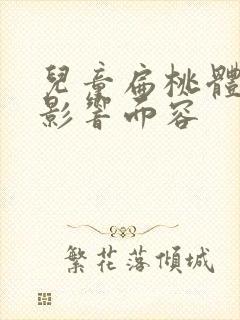 兒童扁桃體
影響而容
繁花落傾城